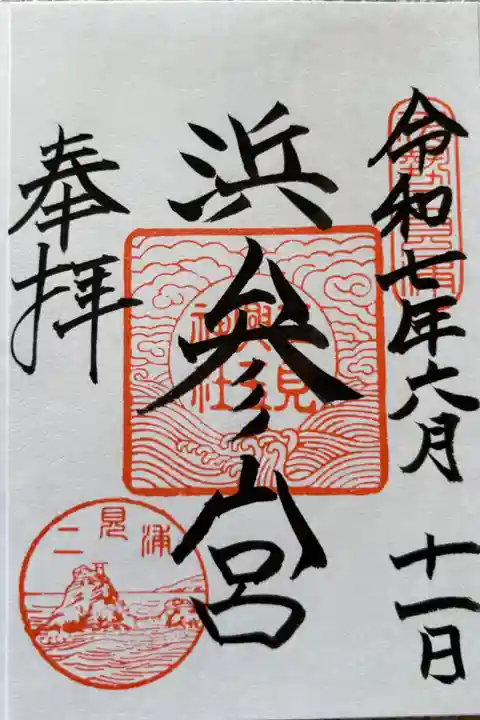 令和七年六月十一日
浜参宮
二見興玉神社
奉拝
二見浦